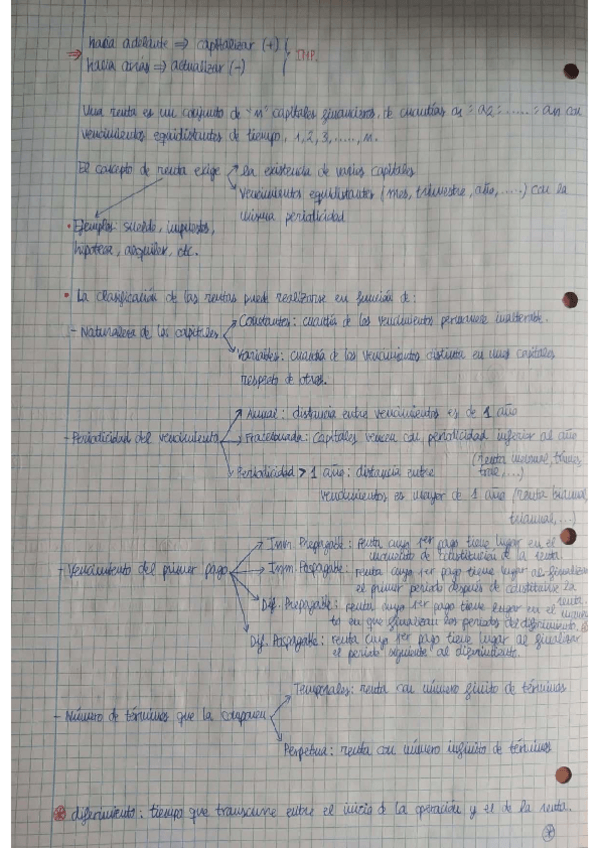 ⇒ hacia adelante ⇒ capitalizar (+)
hacia atrás ⇒ actualizar (-) } IMP.
Una renta es un conjunto de "n" capitales financieros, de cuantías a1 = a2 = ...... = an con
vencimientos equidistantes de tiempo, 1, 2, 3, ....., n.
El concepto de renta exige la existencia de varios capitales
vencimientos equidistantes (mes, trimestre, año, .....) con la
misma periodicidad
• Ejemplos: sueldo, impuestos,
hipoteca, alquiler, etc.
• La clasificación de las rentas puede realizarse en función de:
- Naturaleza de los capitales
Constantes: cuantía de los vencimientos permanece inalterable.
Variables: cuantía de los vencimientos distinta en unos capitales
respecto de otros.
- Periodicidad del vencimiento
Anual: distancia entre vencimientos es de 1 año
Fraccionada: capitales vencen con periodicidad inferior al año
(renta mensual, trimes
tral, ...)
Periodicidad > 1 año: distancia entre
vencimientos es mayor de 1 año (renta bianual,
trianual, ...)
- Vencimiento del primer pago
Inm. Prepagable: renta cuyo 1er pago tiene lugar en el
momento de constitución de la renta.
Inm. Pospagable: renta cuyo 1er pago tiene lugar al finalizar
el primer período después de constituirse la
renta.
Dif. Prepagable: renta cuyo 1er pago tiene lugar en el momen
to en que finalizan los períodos del diferimiento. ⊛
Dif. Pospagable: renta cuyo 1er pago tiene lugar al finalizar
el período siguiente al diferimiento.
- Número de términos que la componen
Temporales: renta con número finito de términos
Perpetua: renta con número infinito de términos
⊛ diferimiento: tiempo que transcurre entre el inicio d la operación y el de la renta.